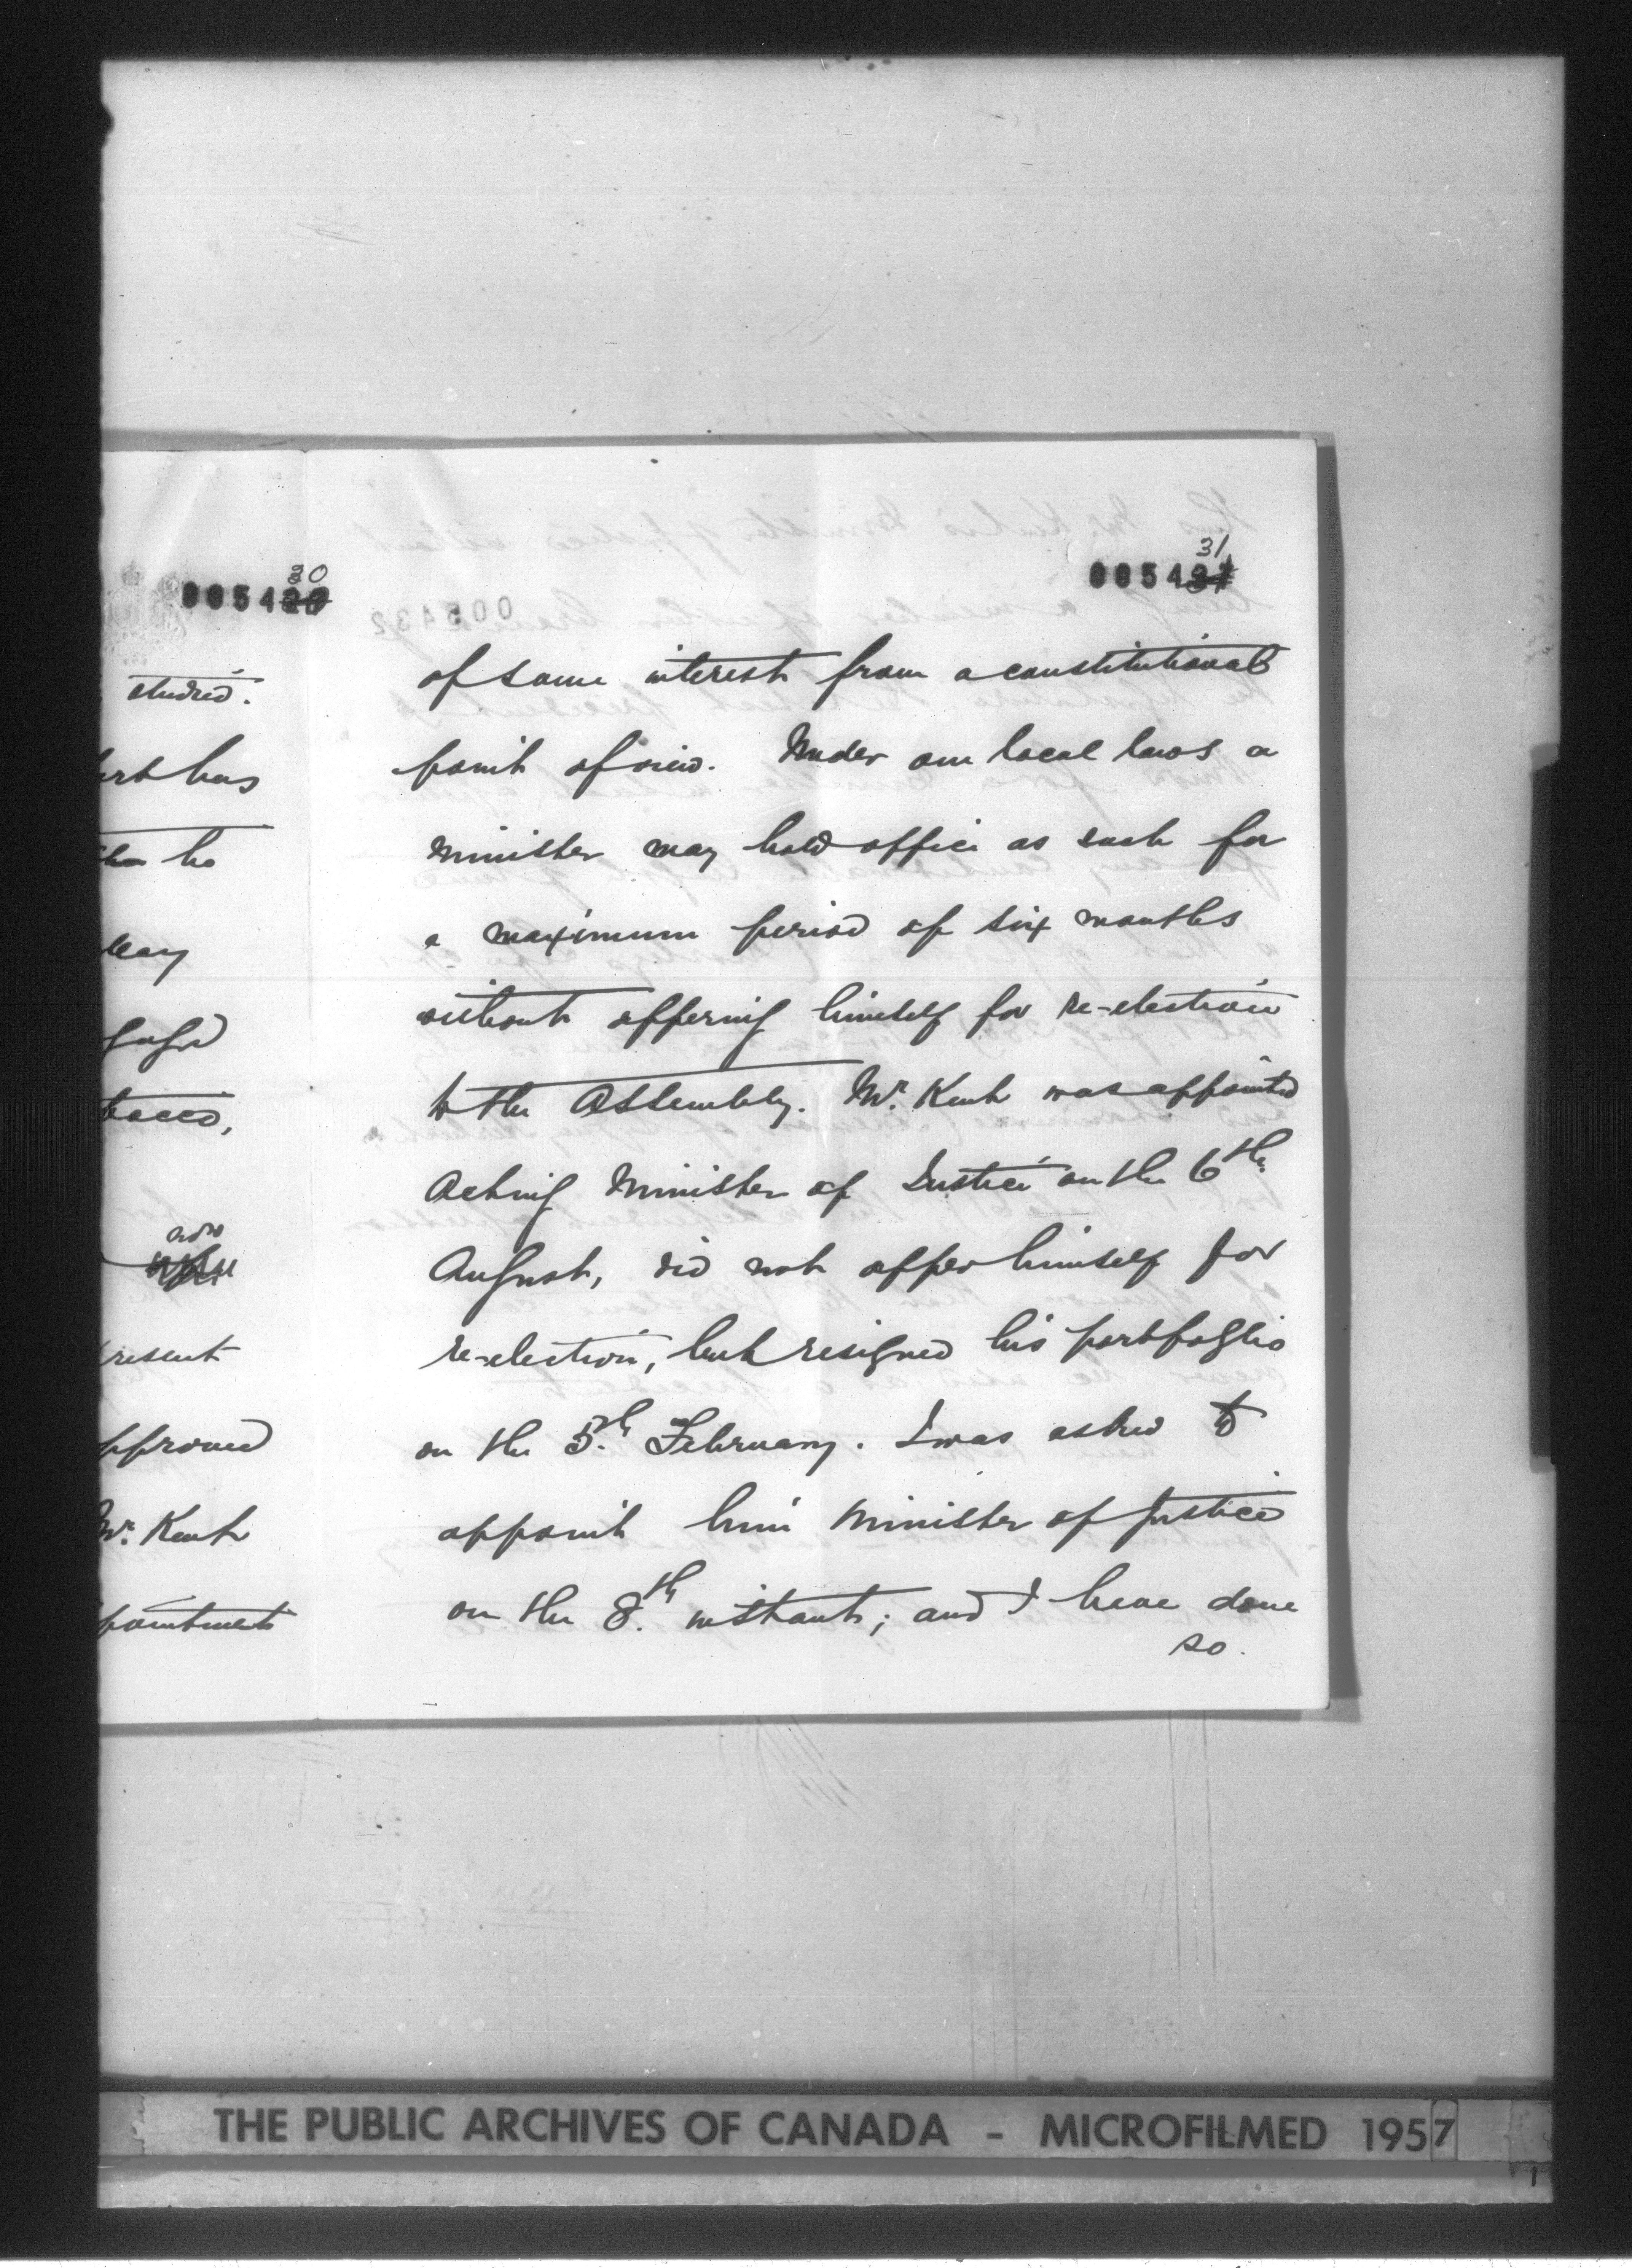 30
005420
studied.
has
he
present
approved
Mr. Kent
pointment
31
005431
of some interest from a constitutional
point of view. Under our local laws a
minister may hold office as such for
a maximum period of six months
without offering himself for re-election
to the Assembly. Mr. Kent was appointed
Acting Minister of Justice on the 6th.
August, did not offer himself for
re-election, but resigned his portfoglio
on the 5th. February. I was asked to
appoint him Minister of Justice
on the 8th. instant; and I have done
so.
THE PUBLIC ARCHIVES OF CANADA - MICROFILMED 1957